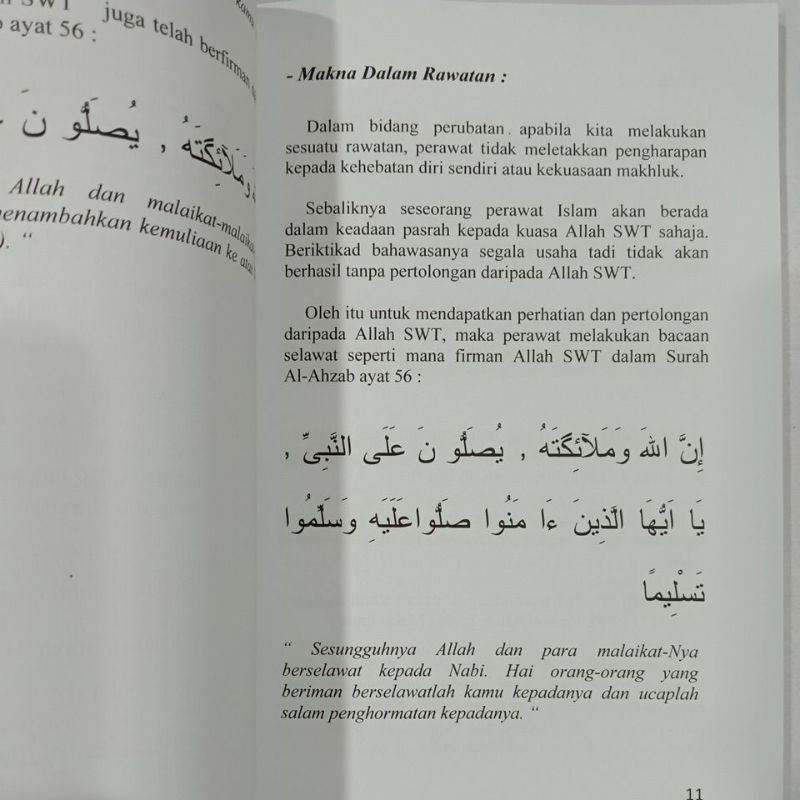 juga telah berfirman
ayat 56 :
Allah dan malaikat-malaikat
menambahkan kemuliaan ke atas
- Makna Dalam Rawatan :
Dalam bidang perubatan. apabila kita melakukan
sesuatu rawatan, perawat tidak meletakkan pengharapan
kepada kehebatan diri sendiri atau kekuasaan makhluk.
Sebaliknya seseorang perawat Islam akan berada
dalam keadaan pasrah kepada kuasa Allah SWT sahaja.
Beriktikad bahawasanya segala usaha tadi tidak akan
berhasil tanpa pertolongan daripada Allah SWT.
Oleh itu untuk mendapatkan perhatian dan pertolongan
daripada Allah SWT, maka perawat melakukan bacaan
selawat seperti mana firman Allah SWT dalam Surah
Al-Ahzab ayat 56 :
إِنَّ اللهَ وَمَلَآئِكَتَهُ , يُصَلُّو نَ عَلَى النَّبِيِّ ,
يَا اَيُّهَا الَّذِينَ ءَا مَنُوا صَلُّواعَلَيَهِ وَسَلِّمُوا
تَسْلِيمًا
“ Sesungguhnya Allah dan para malaikat-Nya
berselawat kepada Nabi. Hai orang-orang yang
beriman berselawatlah kamu kepadanya dan ucaplah
salam penghormatan kepadanya. “
11